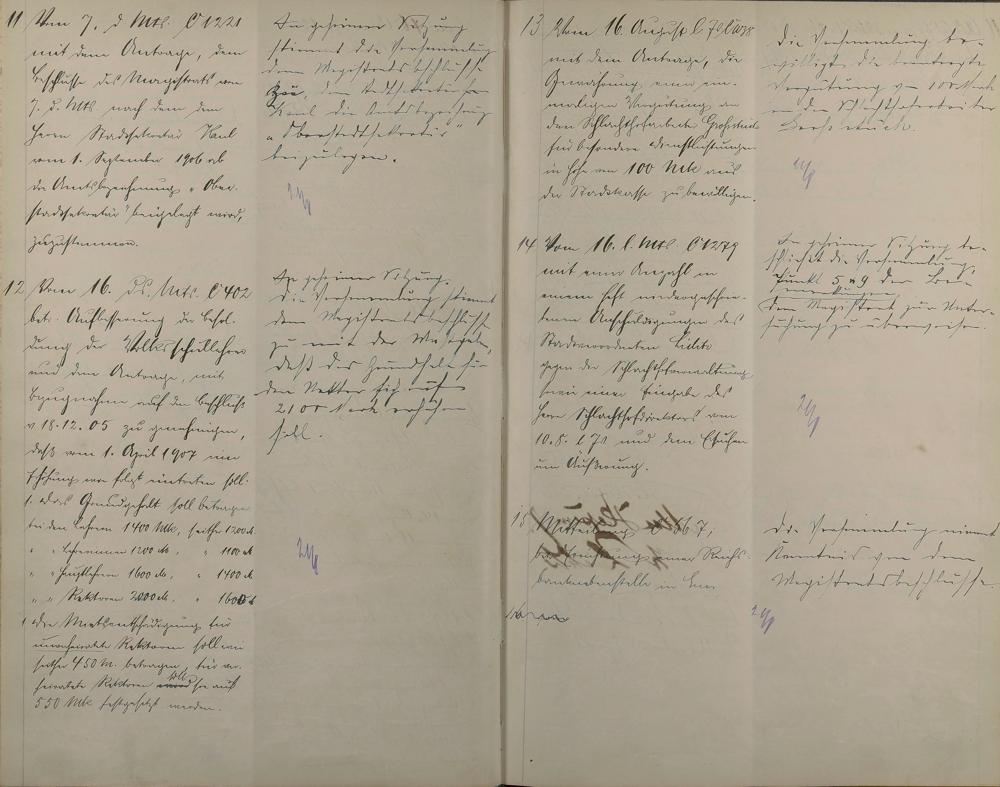 11 Vom 7. d. Mts. C 1221
mit dem Antrage, dem
Beschlusse des Magistrats vom
7. d. Mts. nach dem dem
Herrn Stadtsekretär Kaul
vom 1. September 1906 ab
die Amtsbezeichnung "Ober-
stadtsekretär" beigelegt wird,
zuzustimmen.
In geheimer Sitzung
stimmt die Versammlung
dem Magistratsbeschlusse
zu, dem Stadtsekretär
Kaul die Amtsbezeichnung
"Oberstadtsekretär"
beizulegen.
12 Vom 16. ds. Mts. C 402
betr. Aufbesserung der Besol-
dung der Volksschullehrer
und dem Antrage, mit
Bezugnahme auf den Beschluß
v. 18.12.05 zu genehmigen,
daß vom 1. April 1907 eine
Erhöhung wie folgt eintreten soll.
1. Das Grundgehalt soll betragen
bei den Lehrern 1400 Mk, seither 1200 M.
" " Lehrerinnen 1200 M., " 1100 M
" " Hauptlehrern 1600 M., " 1400 M
" " Rektoren 2000 M. " 1600 M
Die Mietsentschädigung für
unverheiratete Rektoren soll wie
seither 450 M. betragen, für ver-
heiratete Rektoren soll sie auf
550 Mk festgesetzt werden.
In geheimer Sitzung.
Die Versammlung stimmt
dem Magistratsbeschlusse
zu mit der Maßgabe,
daß das Grundgehalt für
den Rektor sich auf
2100 Mark erhöhen
soll.
13 Vom 16. August l. Js.
mit dem Antrage, die
Gewährung einer ein-
maligen Vergütung an
den Schlachthofarbeiter
für besondere Dienstleistungen
in Höhe von 100 Mk aus
der Stadtkasse zu bewilligen.
Die Versammlung be-
willigt die beantragte
Vergütung von 100 Mark
an den Schlachthofarbeiter
14 Vom 16. l. Mts. C 1279
mit einer Anzahl in
einem Heft niedergeschrie-
benen Anschuldigungen des
Stadtverordneten
gegen die Schlachthofverwaltung
sowie einer Eingabe des
Herrn Schlachthofdirektors vom
10.8. l. Js und dem Ersuchen
um Äußerung.
In geheimer Sitzung be-
schließt die Versammlung,
Punkt 5 u 9 der Be-
merkungen
dem Magistrat zur Unter-
suchung zu überweisen.
15 Mitteilung C 867,
betr. Errichtung einer Reichs-
banknebenstelle in Ems
Die Versammlung nimmt
Kenntnis von dem
Magistratsbeschlusse.